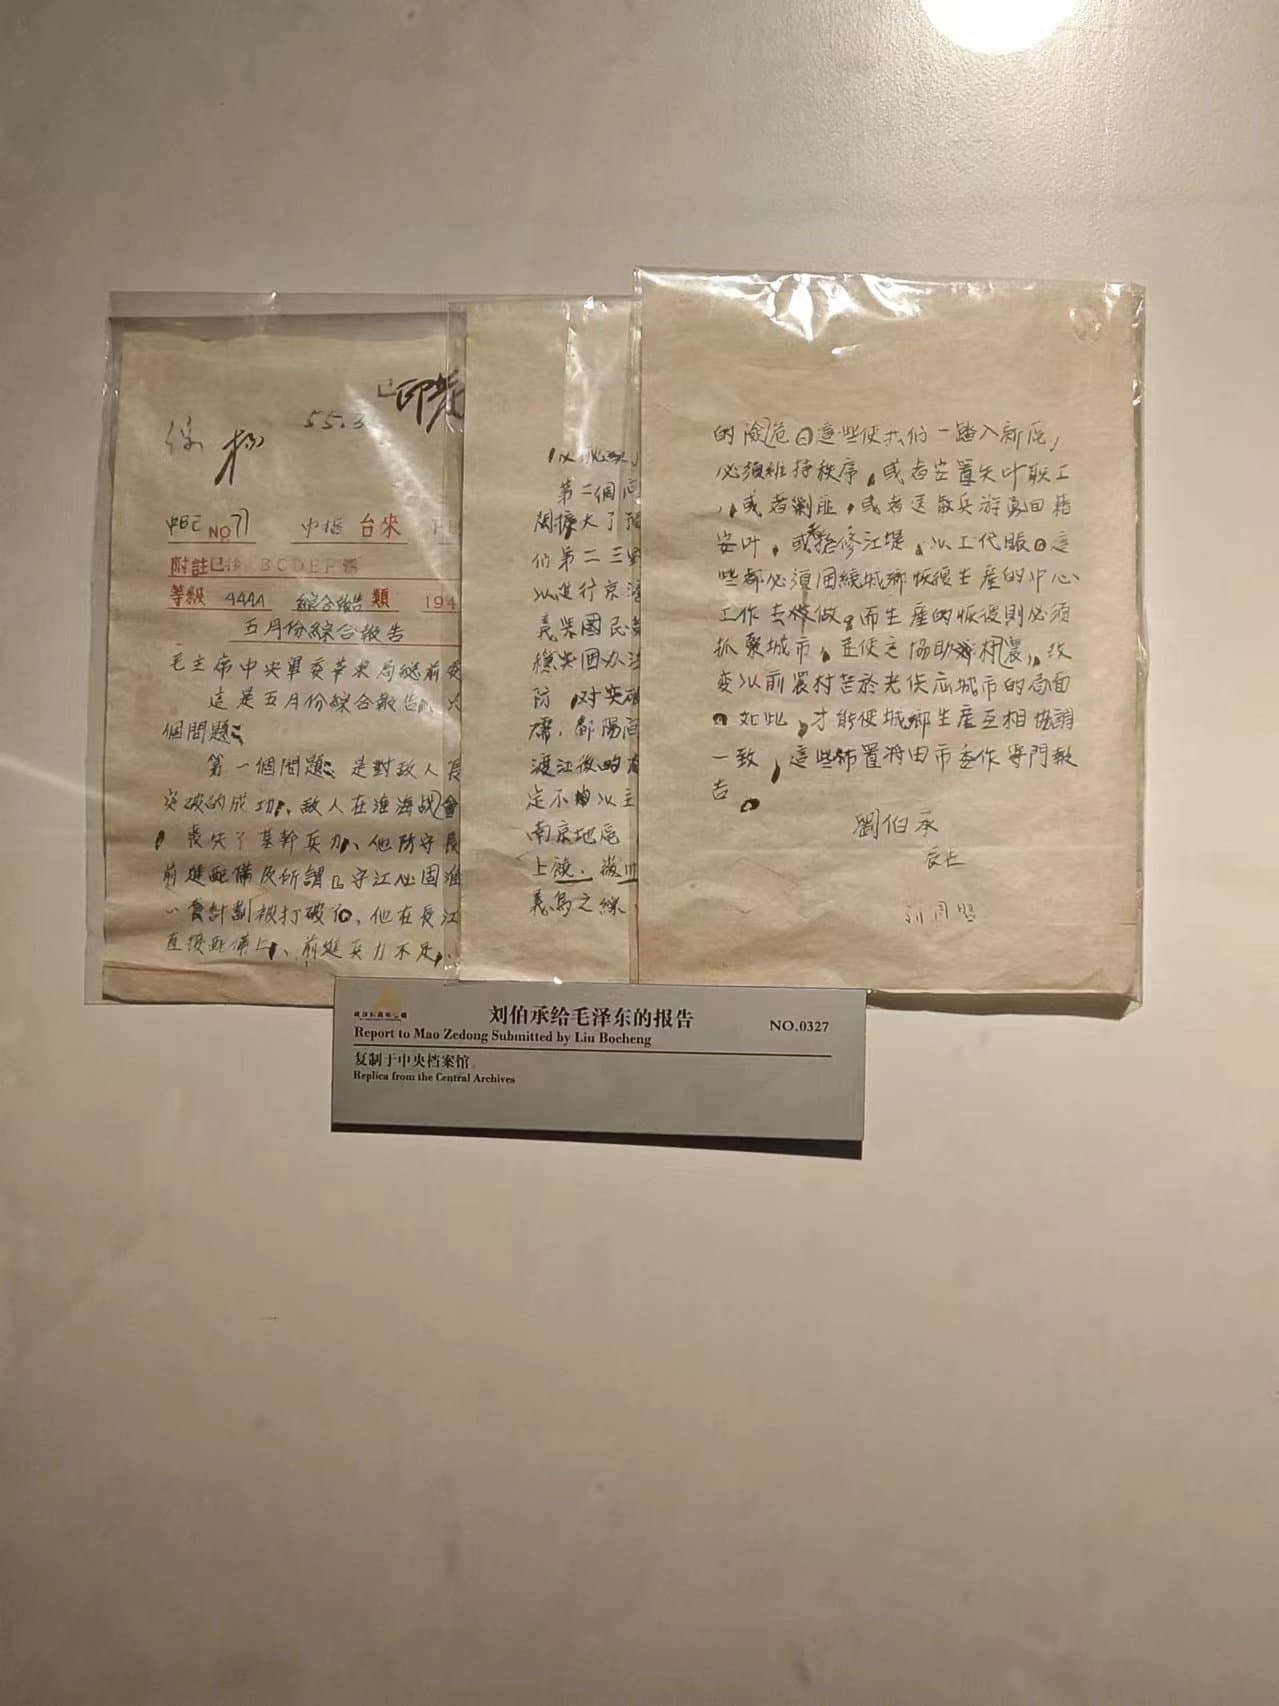 已印發
55.3
NO 71
中樞 台來
附註 ABCDEF
等級 AAAA 綜合報告 類 194
五月份綜合報告
毛主席中央軍委華東局總前委
這是五月份綜合報告
個問題:
第一個問題:是對敵人長
突破的成功、敵人在淮海战
喪失了基幹兵力、他防守長
前進配備及所謂「守江必固淮
套計劃被打破了。他在長江
直接配備上、前進兵力不足、
第二個问
閩擴大了
们第二三野
以進行京滬
義柴國民
穩央回办法
防,对突破
鄱陽
渡江後的
定不以主
南京地區
上饒.
義烏之線
的險危。這些使我们一踏入新區,
必須維持秩序,或者安置失叶联工
,或者剿匪,或者送散兵游勇回籍
安叶,或整修江堤,以工代賑。這
些都必須围繞城鄉恢復生產的中心
工作去做。而生產的恢復則必須
抓緊城市,並使之協助鄉村農,改
變以前農村苦於光供應城市的局面
。如此,才能使城鄉生產互相協調
一致,這些佈置將由市委作專門報
告。
劉伯承
辰世
刘伯承给毛泽东的报告
NO.0327
Report to Mao Zedong Submitted by Liu Bocheng
复制于中央档案馆。
Replica from the Central Archives